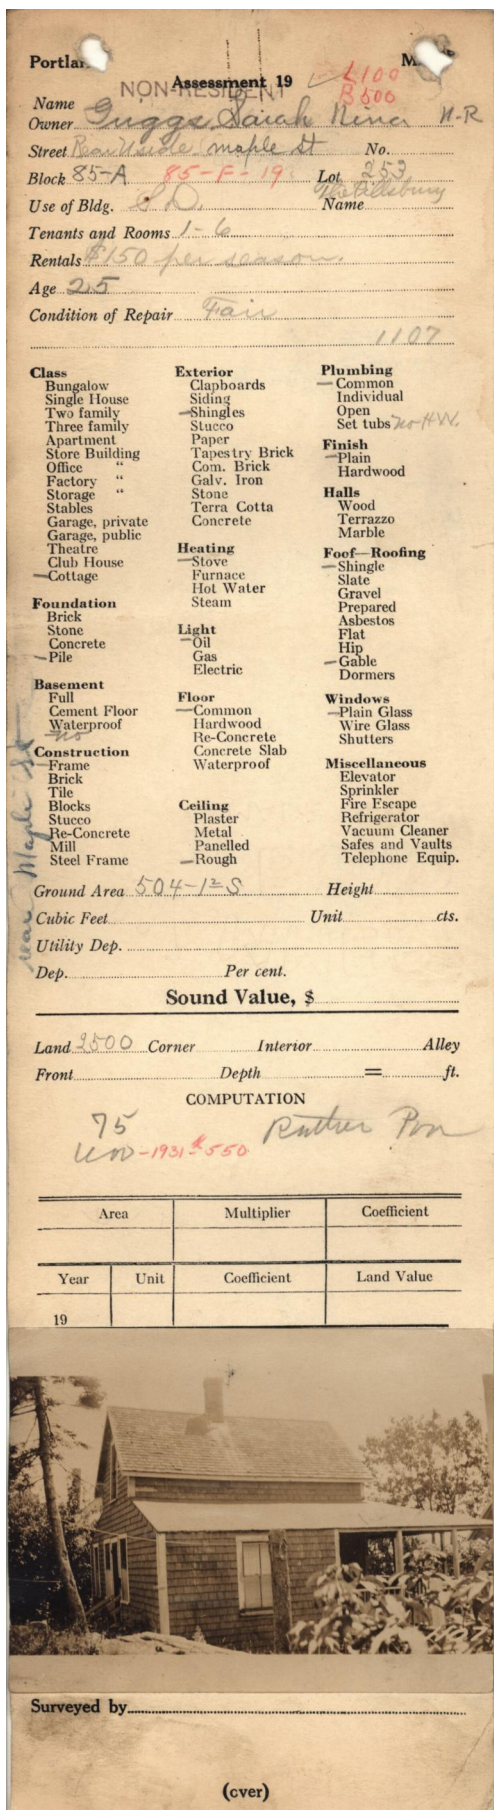 Portla M
Assessment 19 L100
NON-RESIDENT B500
Name
Owner Griggs, Sarah Nina N-R
Street Rear N side maple St No.
Block 85-A 85-F-19 Lot 253
Use of Bldg. S D. Name The Pillsbury
Tenants and Rooms 1-6
Rentals $150 per season.
Age 25
Condition of Repair Fair
1107
Class
Bungalow
Single House
Two family
Three family
Apartment
Store Building
Office "
Factory "
Storage "
Stables
Garage, private
Garage, public
Theatre
Club House
Cottage
Foundation
Brick
Stone
Concrete
Pile
Basement
Full
Cement Floor
Waterproof
no
Construction
Frame
Brick
Tile
Blocks
Stucco
Re-Concrete
Mill
Steel Frame
Exterior
Clapboards
Siding
Shingles
Stucco
Paper
Tapestry Brick
Com. Brick
Galv. Iron
Stone
Terra Cotta
Concrete
Heating
Stove
Furnace
Hot Water
Steam
Light
Oil
Gas
Electric
Floor
Common
Hardwood
Re-Concrete
Concrete Slab
Waterproof
Ceiling
Plaster
Metal
Panelled
Rough
Plumbing
Common
Individual
Open
Set tubs no H.W.
Finish
Plain
Hardwood
Halls
Wood
Terrazzo
Marble
Foof—Roofing
Shingle
Slate
Gravel
Prepared
Asbestos
Flat
Hip
Gable
Dormers
Windows
Plain Glass
Wire Glass
Shutters
Miscellaneous
Elevator
Sprinkler
Fire Escape
Refrigerator
Vacuum Cleaner
Safes and Vaults
Telephone Equip.
rear Maple St
Ground Area 504-1½ S Height
Cubic Feet Unit cts.
Utility Dep.
Dep. Per cent.
Sound Value, $
Land 2500 Corner Interior Alley
Front Depth = ft.
COMPUTATION
75 Rather Poor
-1931 $550
Area Multiplier Coefficient
Year Unit Coefficient Land Value
19
Surveyed by
(over)